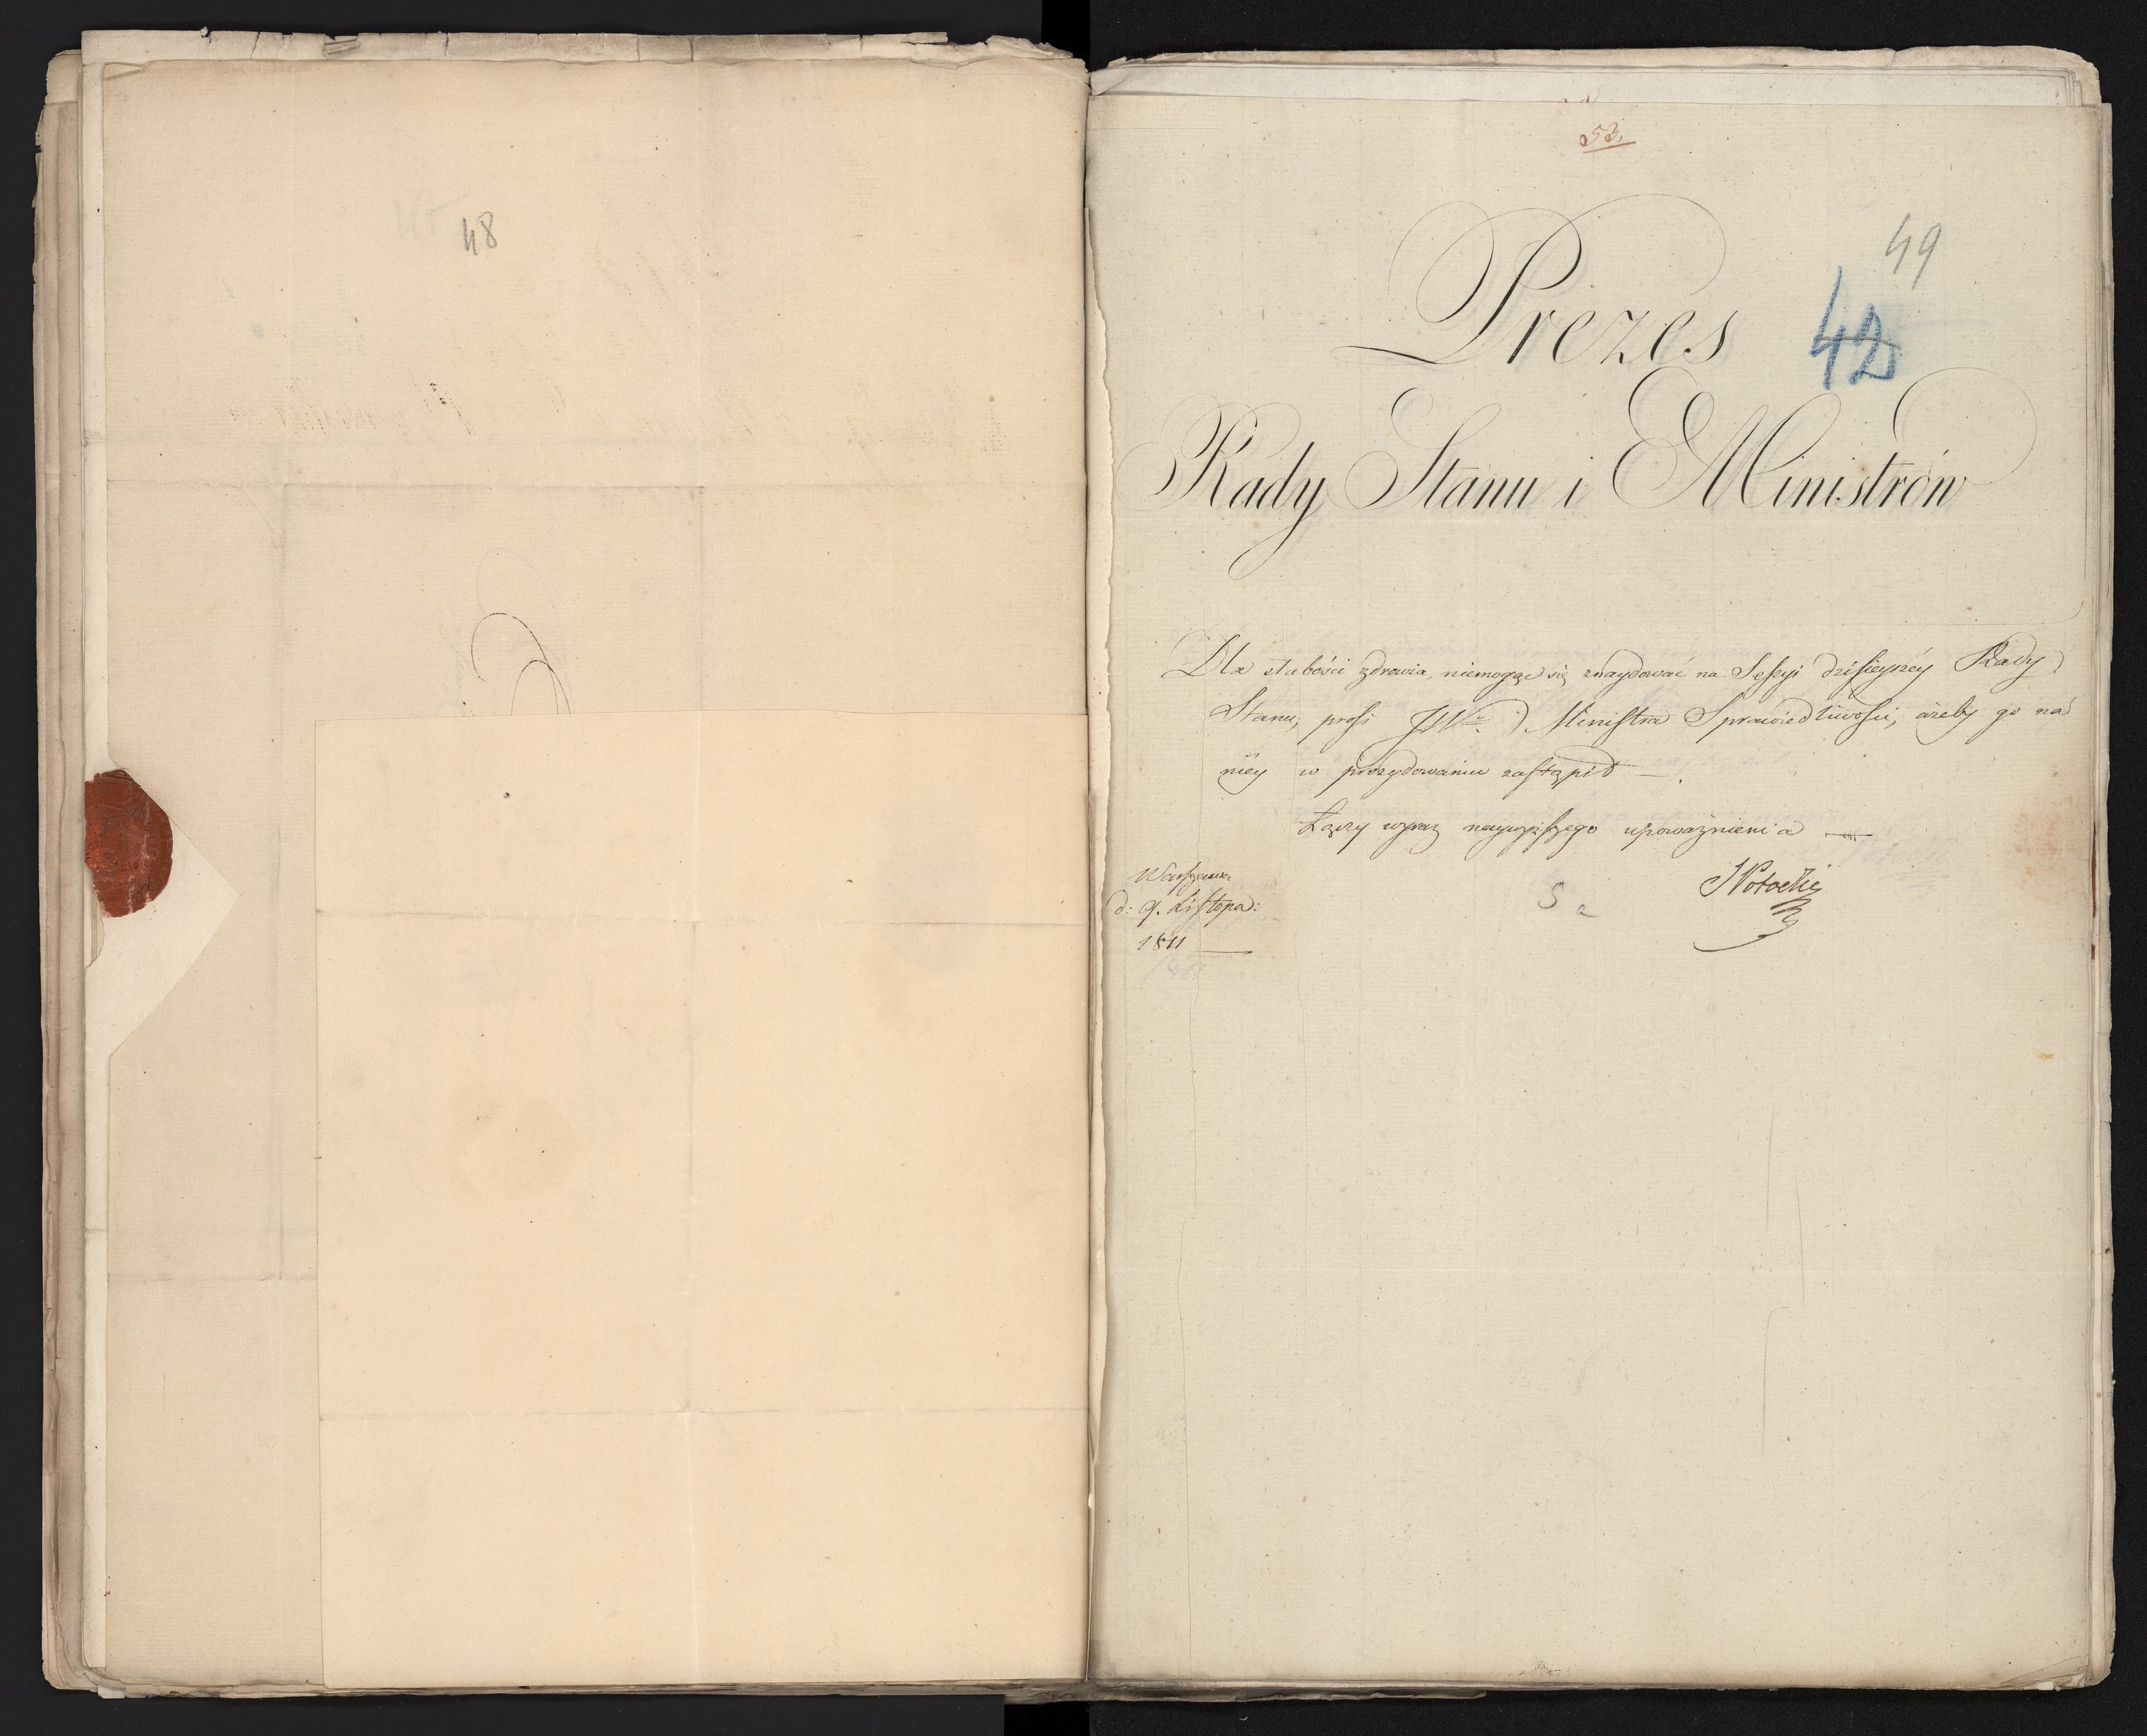 48
53.
49
Prezes
42
Rady Stanu i Ministrów
Dla słabości zdrowia, niemogąc się znaydować na Sessyi dzisieyszéy Rady
Stanu, prosi JWo. Ministra Sprawiedliwości, ażeby go na
niéy w prezydowaniu zastąpił —.
Łączy wyraz naywyższego upoważnienia —
Warszawa
d: 9. Listopa:
1811 —
Potocki